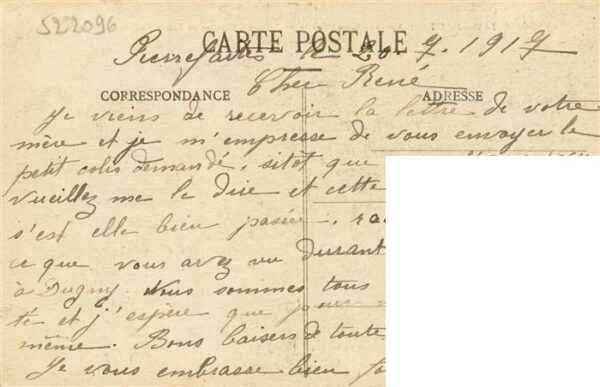 522096
CARTE POSTALE
Pierrefitte le 20. 7. 1917
Cher René
CORRESPONDANCE
ADRESSE
Je viens de recevoir la lettre de votre
mère et je m'empresse de vous envoyer le
petit colis demandé, sitot que
vueillez me le dire et cette
s'est elle bien passée.
ce que vous avez vu durant
à Dugny. Nous sommes tous
té et j'espère que pour
même. Bons baisers de toute
Je vous embrasse bien